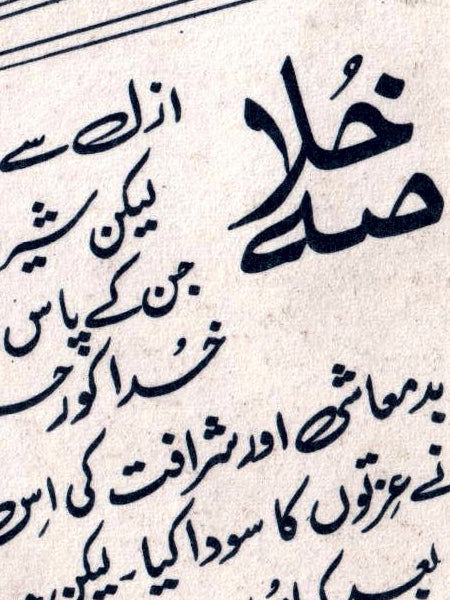 خُلاصہ
ازل سے
لیکن
جن کے پاس
خُدا کو
بدمعاشی اور شرافت کی اِس
نے عزتوں کا سودا کیا۔ لیکن
بعد